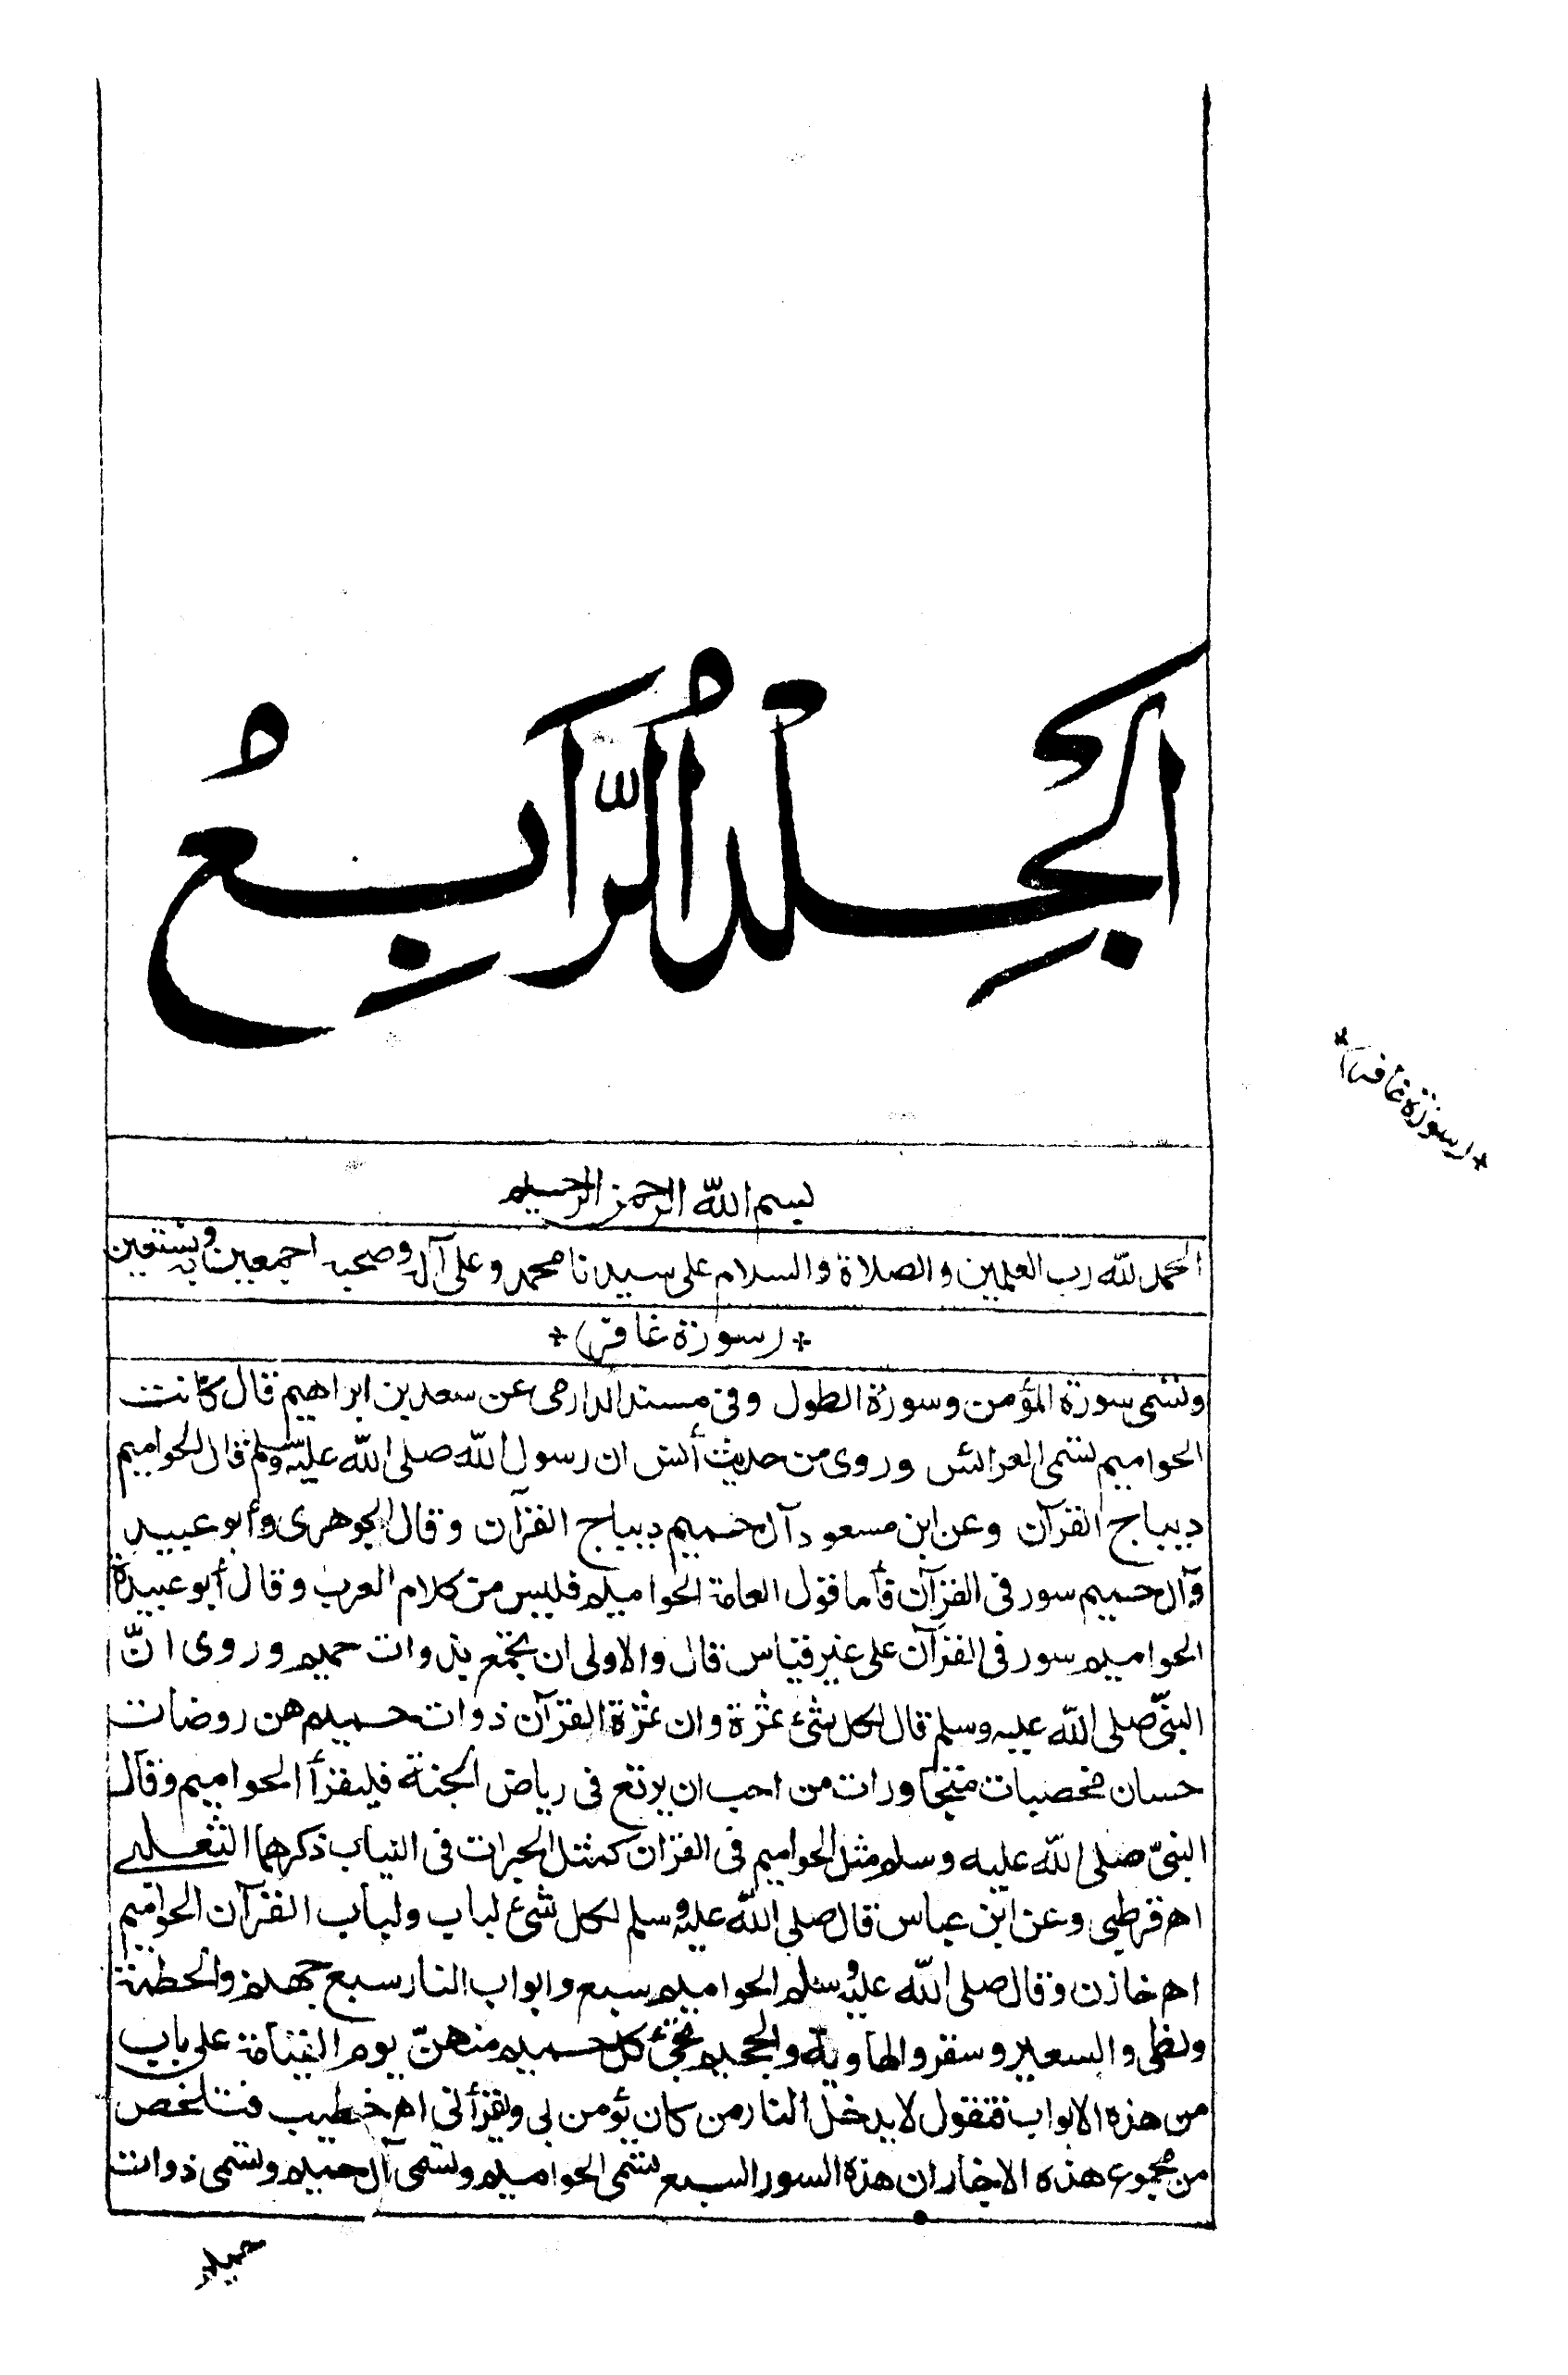 الجلد الرابع
بسم الله الرحمن الرحيم
الحمد لله رب العلمين والصلاة والسلام على سيدنا محمد وعلى آله وصحبه اجمعين وبه نستعين
(سورة غافر)
(سورة غافر)
وتسمى سورة المؤمن وسورة الطول وفى مسند الدارمى عن سعد بن ابراهيم قال كانت
الحواميم تسمى العرائس وروى من حديث أنس ان رسول الله صلى الله عليه وسلم قال الحواميم
ديباج القرآن وعن ابن مسعود آل حميم ديباج القرآن وقال الجوهرى وأبو عبيد
وآل حميم سور فى القرآن فأما قول العامة الحواميم فليس من كلام العرب وقال أبو عبيدة
الحواميم سور فى القرآن على غير قياس قال والاولى ان تجمع بذوات حميم وروى انّ
النبىّ صلى الله عليه وسلم قال لكل شئ ثمرة وان ثمرة القرآن ذوات حميم هن روضات
حسان مخصبات متجاورات من احب ان يرتع فى رياض الجنة فليقرأ الحواميم وقال
النبىّ صلى الله عليه وسلم مثل الحواميم فى القرآن كمثل الحبرات فى الثياب ذكرهما الثعلبى
اه قرطبى وعن ابن عباس قال صلى الله عليه وسلم لكل شئ لباب ولباب القرآن الحواميم
اه خازن وقال صلى الله عليه وسلم الحواميم سبع وابواب النار سبع جهنم والحطمة
ولظى والسعير وسقر والهاوية والجحيم تجئ كل حميم منهنّ يوم القيامة على باب
من هذه الابواب فتقول لا يدخل النار من كان يؤمن بى ويقرأنى اه خطيب فتلخص
من مجموع هذه الاخبار ان هذه السور السبع تسمى الحواميم وتسمى آل حميم وتسمى ذوات
حميم